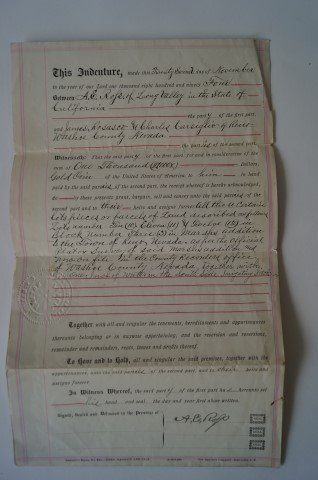 This Indenture, made this Twenty Second day of November
in the year of our Lord one thousand eight hundred and ninety Four
Between A.C. Ross of Long Valley in the State of
California
the party of the first part
and James Rosasco & Charles of Reno
Washoe County Nevada
the parties of the second part,
Witnesseth: That the said party of the first part, for and in consideration of the
sum of One Thousand dollars
Gold Coin to him in
hand paid by the said parties of the second part, the receipt whereof is hereby acknowledged,
do by these presents, grant, bargain, sell and convey unto the said parties of the
second part and to their heirs and assigns forever, all the certain
Lots pieces or parcels of Land described as follows
Lots number Ten (10) Eleven (11) & Twelve (12) in
Block Number Three (3) in Marsh's addition
to the Town of Reno, Nevada, as per the official
of said Marsh's addition
now on file in the County Recorders office
of Washoe County Nevada, together with
Together with all and singular the tenements, hereditaments and appurtenances
thereunto belonging or in anywise appertaining, and the reversion and reversions,
remainder and remainders, rents, issues and profits thereof.
To Have and to Hold, all and singular the said premises, together with the
appurtenances, unto the said parties of the second part, and to their heirs
and assigns forever.
In Witness Whereof, the said party of the first part has hereunto set
his hand and seal the day and year first above written.
Signed, Sealed and Delivered in the Presence of
A.C. Ross